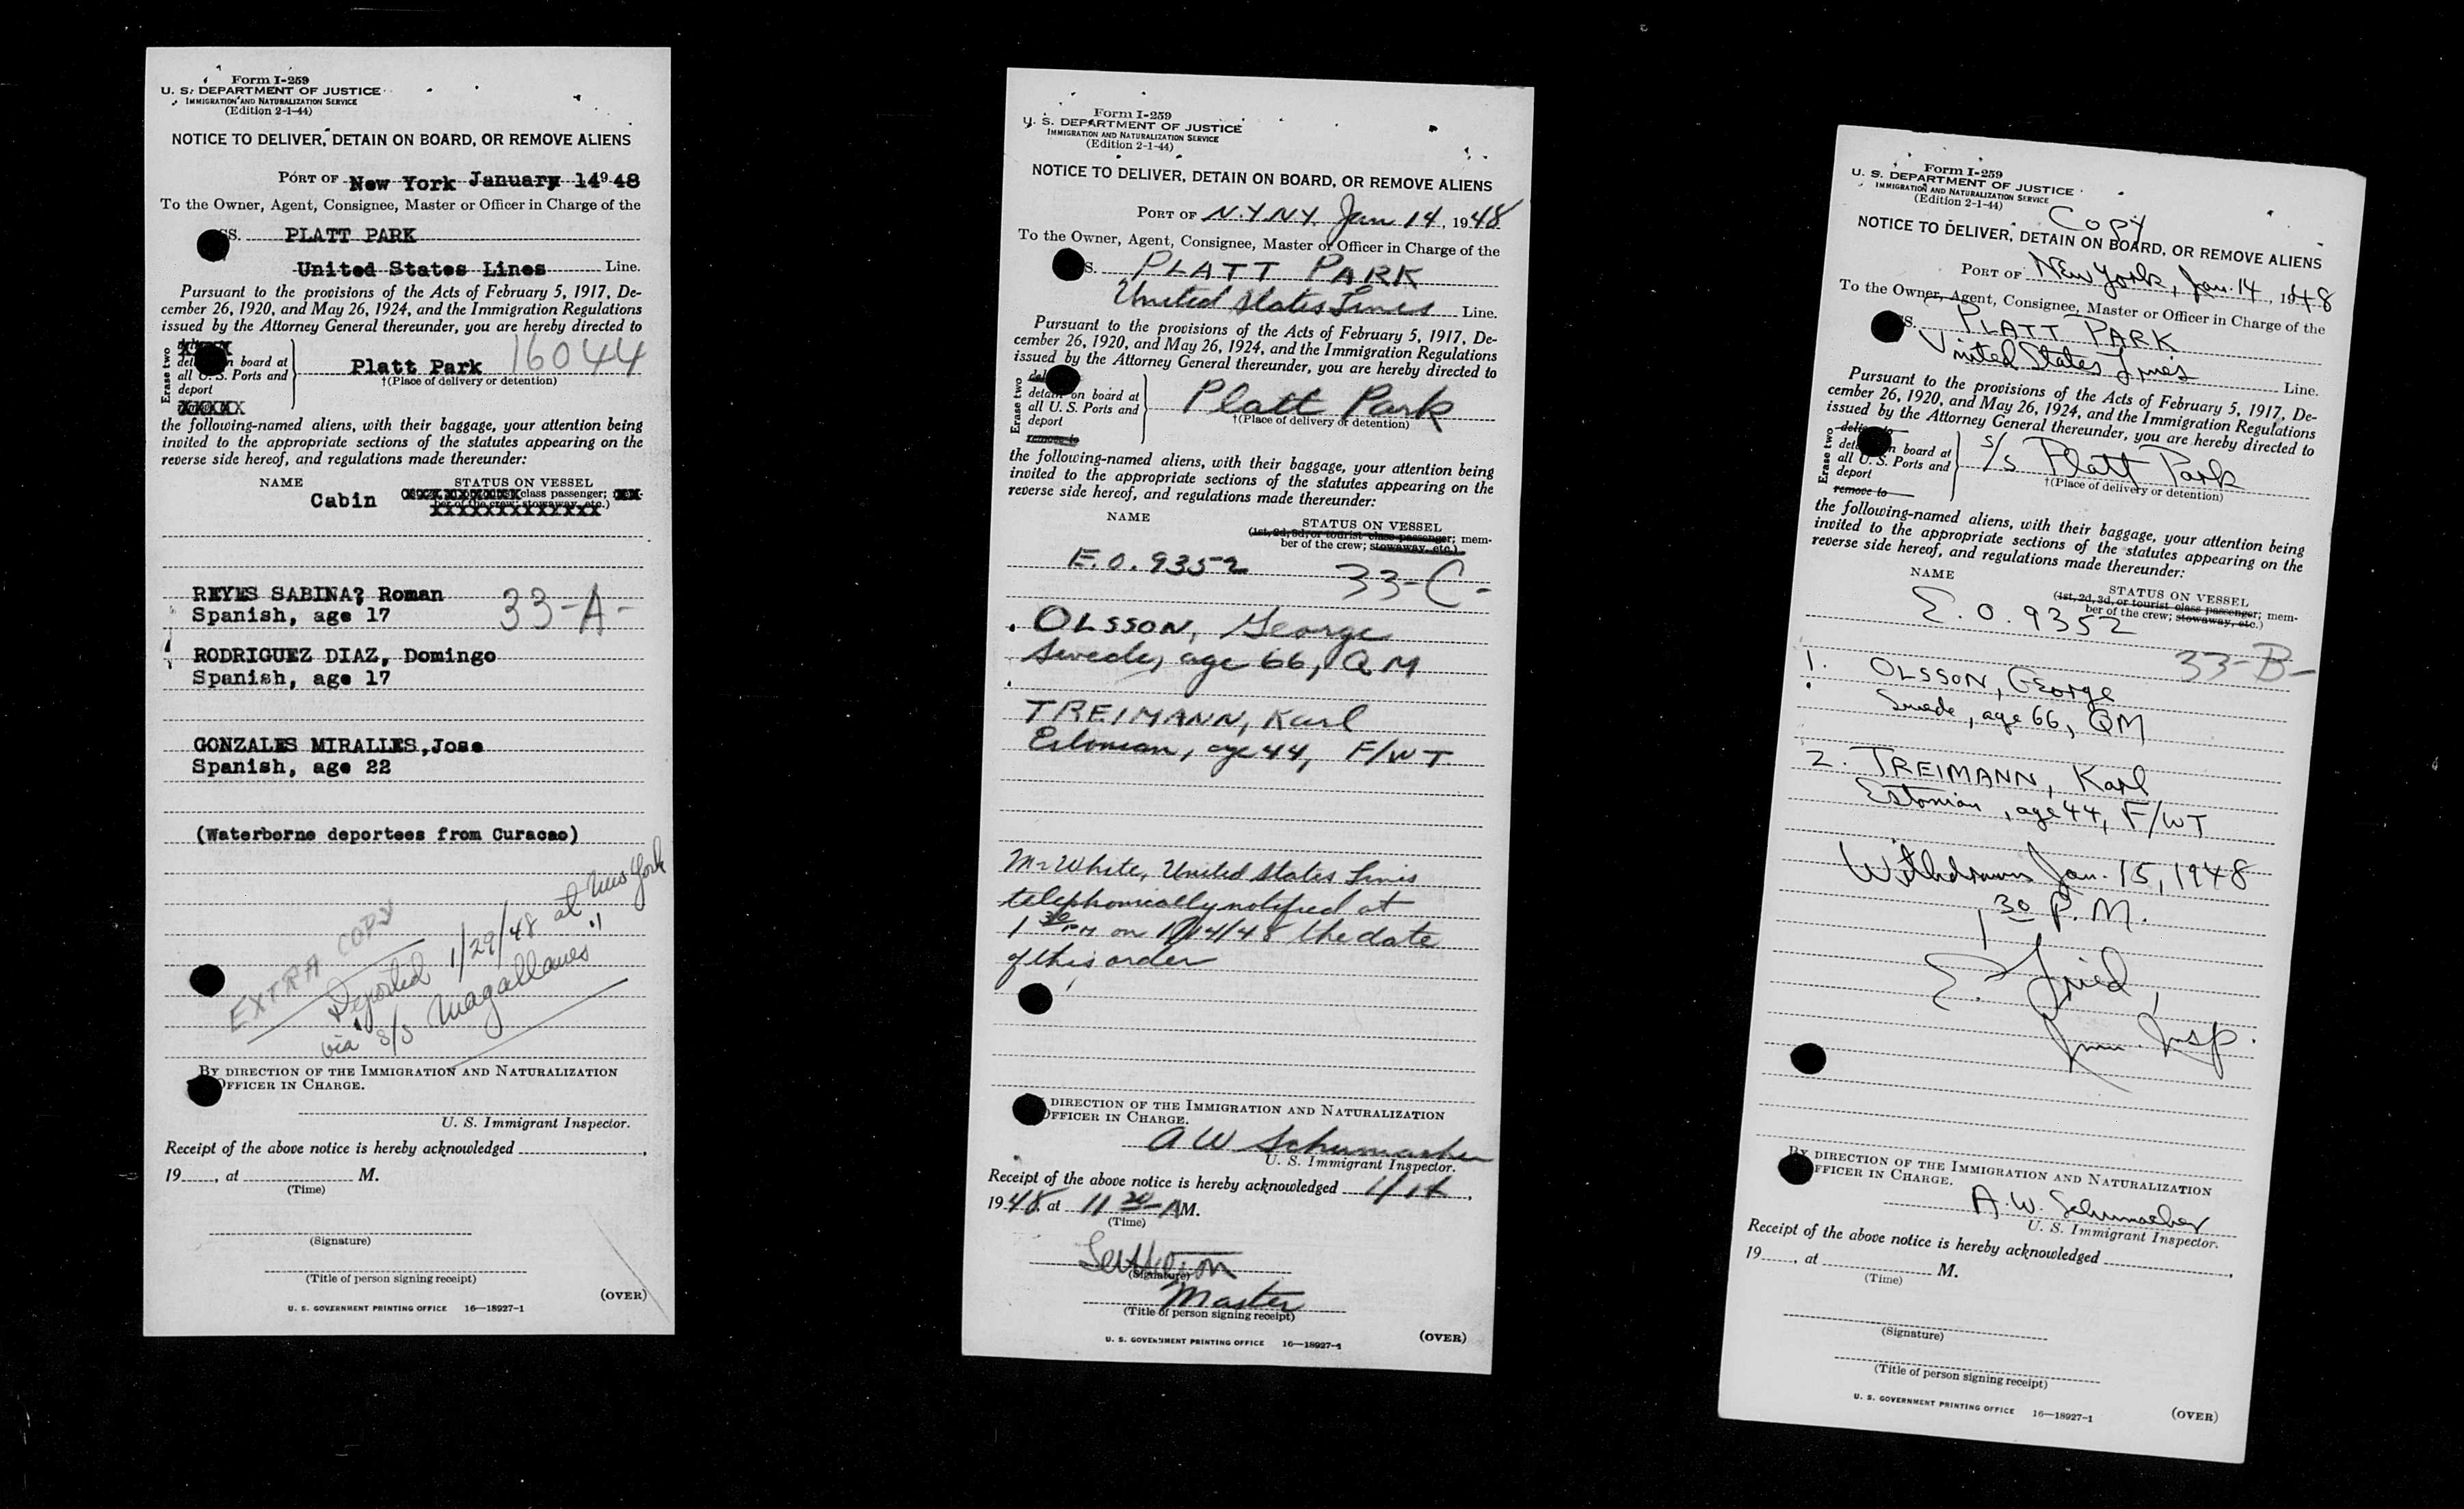 Form I-259
U. S. DEPARTMENT OF JUSTICE
IMMIGRATION AND NATURALIZATION SERVICE
(Edition 2-1-44)
NOTICE TO DELIVER, DETAIN ON BOARD, OR REMOVE ALIENS
PORT OF New York January 14 19 48
To the Owner, Agent, Consignee, Master or Officer in Charge of the
SS. PLATT PARK
United States Lines Line.
Pursuant to the provisions of the Acts of February 5, 1917, De-
cember 26, 1920, and May 26, 1924, and the Immigration Regulations
issued by the Attorney General thereunder, you are hereby directed to
Erase two
on board at
all U. S. Ports and
deport
Platt Park 16044
†(Place of delivery or detention)
the following-named aliens, with their baggage, your attention being
invited to the appropriate sections of the statutes appearing on the
reverse side hereof, and regulations made thereunder:
NAME STATUS ON VESSEL
Cabin class passenger;
ber of the crew; stowaway, etc.)
REYES SABINA? Roman
Spanish, age 17 33-A-
RODRIGUEZ DIAZ, Domingo
Spanish, age 17
GONZALES MIRALLES, Jose
Spanish, age 22
(Waterborne deportees from Curacao)
EXTRA COPY
Deported 1/29/48 at New York
via s/s "Magallanes"
BY DIRECTION OF THE IMMIGRATION AND NATURALIZATION
OFFICER IN CHARGE.
U. S. Immigrant Inspector.
Receipt of the above notice is hereby acknowledged
19 , at M.
(Time)
(Signature)
(Title of person signing receipt)
(OVER)
U. S. GOVERNMENT PRINTING OFFICE 16—18927-1
Form I-259
U. S. DEPARTMENT OF JUSTICE
IMMIGRATION AND NATURALIZATION SERVICE
(Edition 2-1-44)
NOTICE TO DELIVER, DETAIN ON BOARD, OR REMOVE ALIENS
PORT OF N.Y. N.Y. Jan 14, 1948
To the Owner, Agent, Consignee, Master or Officer in Charge of the
S. PLATT PARK
United States Lines Line.
Pursuant to the provisions of the Acts of February 5, 1917, De-
cember 26, 1920, and May 26, 1924, and the Immigration Regulations
issued by the Attorney General thereunder, you are hereby directed to
Erase two
detain on board at
all U. S. Ports and
deport
remove to
Platt Park
†(Place of delivery or detention)
the following-named aliens, with their baggage, your attention being
invited to the appropriate sections of the statutes appearing on the
reverse side hereof, and regulations made thereunder:
NAME STATUS ON VESSEL
(1st, 2d, 3d, or tourist class passenger; mem-
ber of the crew; stowaway, etc.)
E.O. 9352 33-C-
OLSSON, George
Swede, age 66, QM
TREIMANN, Karl
Estonian, age 44, F/WT
Mr White, United States Lines
telephonically notified at
1 30 PM on 1/14/48 the date
of this order
DIRECTION OF THE IMMIGRATION AND NATURALIZATION
OFFICER IN CHARGE.
A W Schumacher
U. S. Immigrant Inspector.
Receipt of the above notice is hereby acknowledged 1/14,
1948, at 11 20 AM.
(Time)
(Signature)
Master
(Title of person signing receipt)
U. S. GOVERNMENT PRINTING OFFICE 16—18927-1
(OVER)
Form I-259
U. S. DEPARTMENT OF JUSTICE
IMMIGRATION AND NATURALIZATION SERVICE
(Edition 2-1-44)
Copy
NOTICE TO DELIVER, DETAIN ON BOARD, OR REMOVE ALIENS
PORT OF New York, Jan. 14, 1948
To the Owner, Agent, Consignee, Master or Officer in Charge of the
S. PLATT PARK
United States Lines Line.
Pursuant to the provisions of the Acts of February 5, 1917, De-
cember 26, 1920, and May 26, 1924, and the Immigration Regulations
issued by the Attorney General thereunder, you are hereby directed to
Erase two
on board at
all U. S. Ports and
deport
remove to
S/S Platt Park
†(Place of delivery or detention)
the following-named aliens, with their baggage, your attention being
invited to the appropriate sections of the statutes appearing on the
reverse side hereof, and regulations made thereunder:
NAME STATUS ON VESSEL
(1st, 2d, 3d, or tourist class passenger; mem-
ber of the crew; stowaway, etc.)
E.O. 9352
33-B-
1. OLSSON, George
Swede, age 66, QM
2. TREIMANN, Karl
Estonian, age 44, F/WT
Withdrawn Jan. 15, 1948
1 30 P.M.
E. Fried,
Imm. Insp.
BY DIRECTION OF THE IMMIGRATION AND NATURALIZATION
OFFICER IN CHARGE.
A. W. Schumacher
U. S. Immigrant Inspector.
Receipt of the above notice is hereby acknowledged
19 , at M.
(Time)
(Signature)
(Title of person signing receipt)
U. S. GOVERNMENT PRINTING OFFICE 16—18927-1
(OVER)